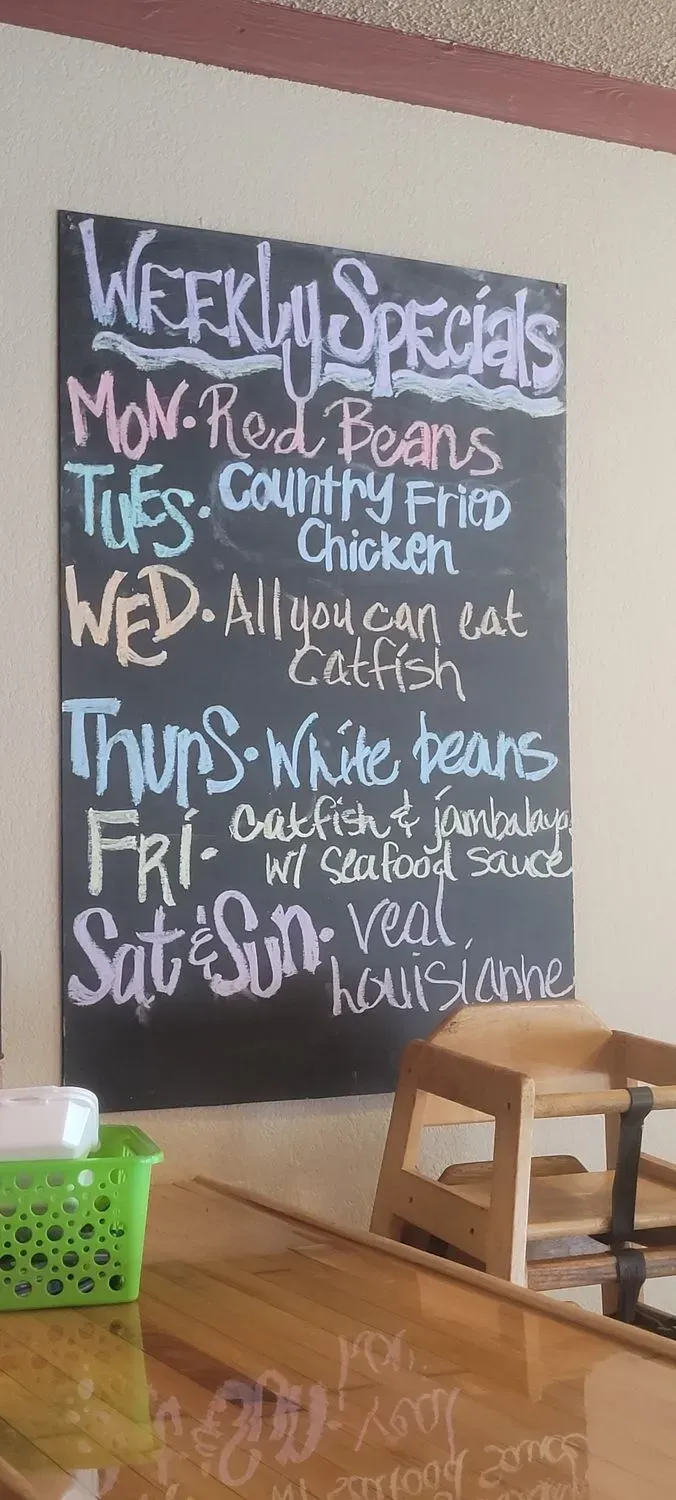 Weekly Specials
Mon. Red Beans
Tues. Country Fried
Chicken
Wed. All you can eat
catfish
Thurs. White beans
Fri. catfish & jambalaya
w/ seafood sauce
Sat & Sun. veal
Louisianne